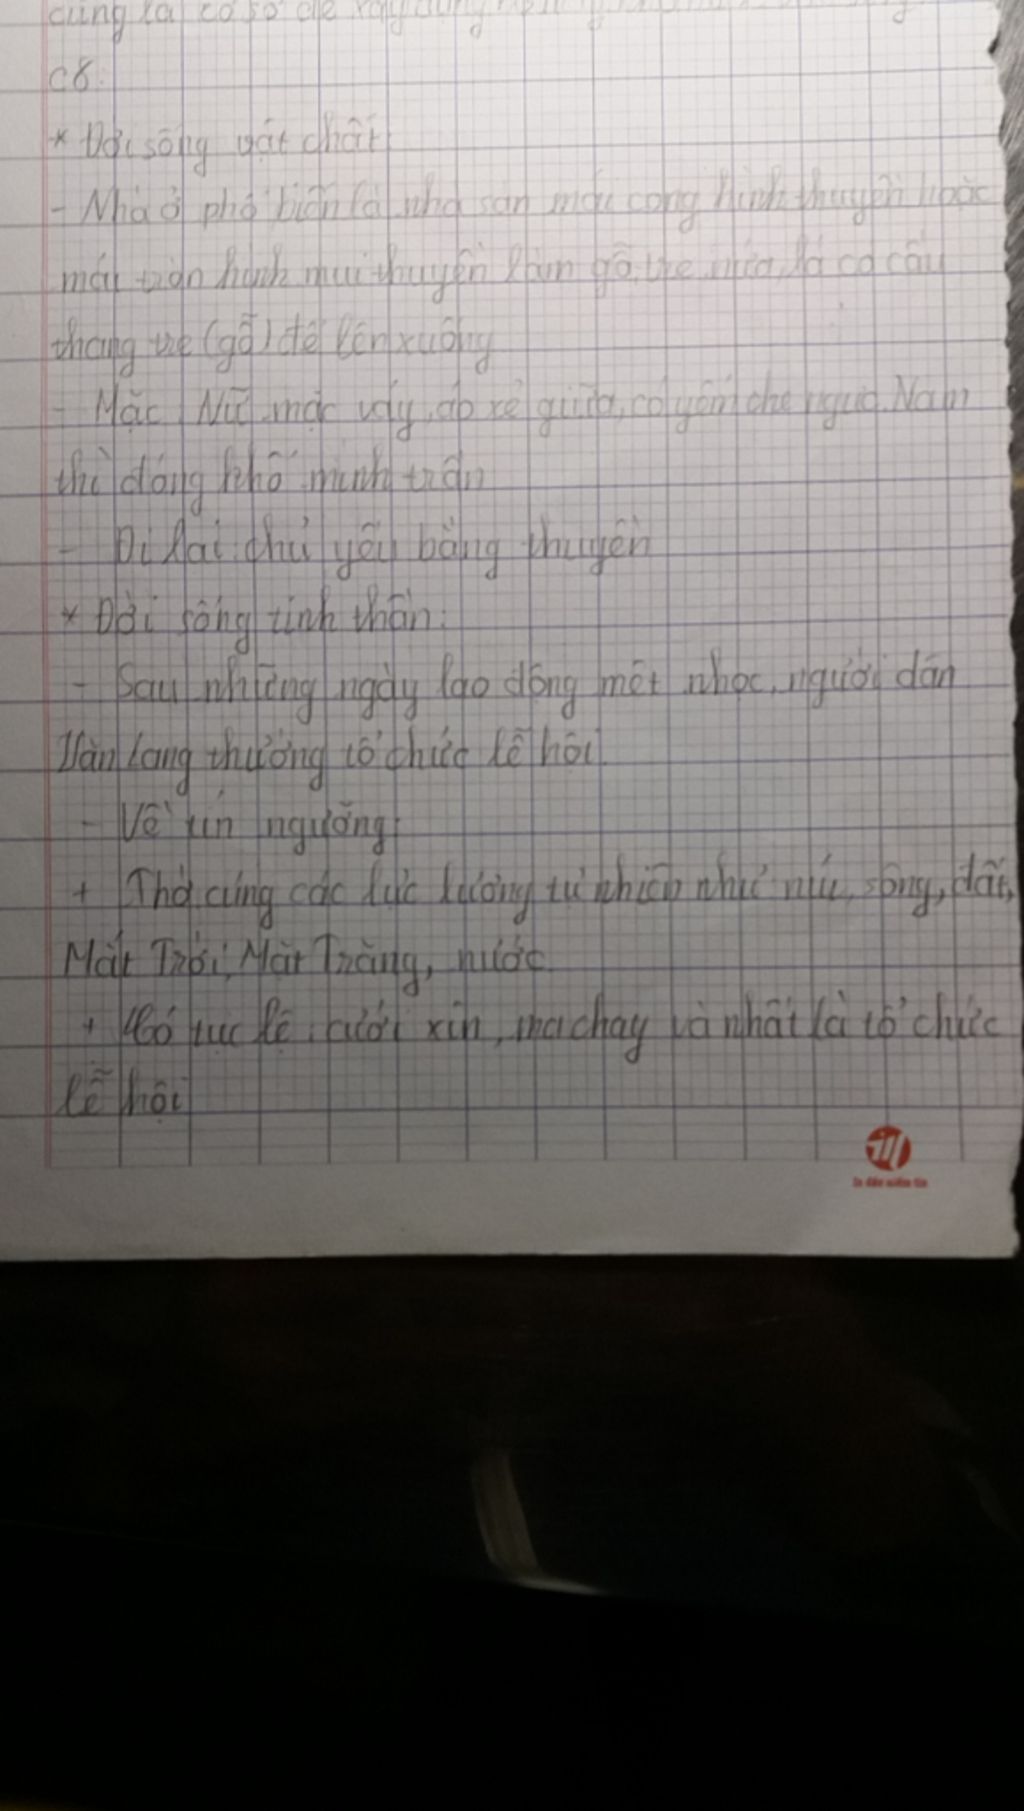 cũng là cơ sở để xây dựng
C8.
* Đời sống vật chất
- Nhà ở phổ biến là nhà sàn mái cong hình thuyền hoặc
mái tròn hình mui thuyền làm gỗ, tre, nứa, lá có cầu
thang tre (gỗ) để lên xuống
- Mặc Nữ mặc váy, áo xẻ giữa, có yếm che ngực. Nam
thì đóng khố mình trần
- Đi lại: chủ yếu bằng thuyền
* Đời sống tinh thần:
- Sau những ngày lao động mệt nhọc, người dân
Văn Lang thường tổ chức lễ hội
- Về tín ngưỡng:
+ Thờ cúng các lực lượng tự nhiên như núi, sông, đất,
Mặt Trời, Mặt Trăng, nước.
+ Có tục lệ cưới xin, ma chay và nhất là tổ chức
lễ hội
In dấu niềm tin